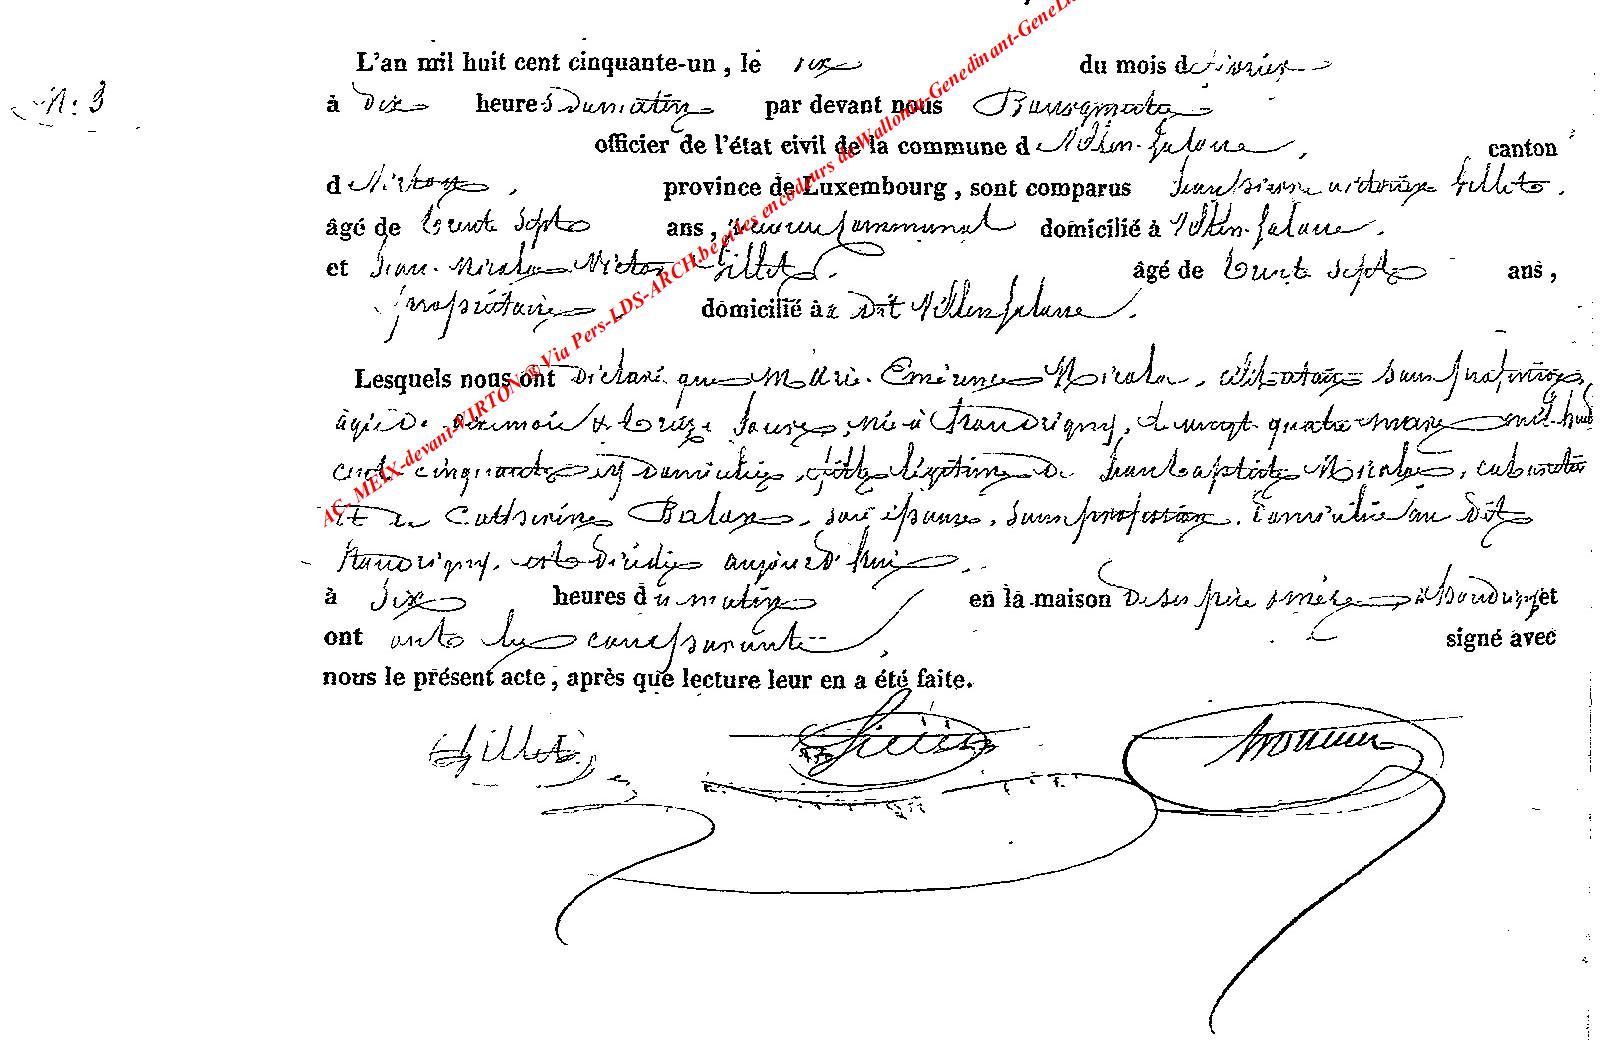 N: 3
L'an mil huit cent cinquante-un, le six du mois de février
à dix heures du matin par devant nous Bourgmestre
officier de l'état civil de la commune d canton
d Virton, province de Luxembourg, sont comparus Jean Pierre Gillet.
âgé de trente sept ans, communal domicilié à
et Jean Nicolas Victor Gillet, âgé de trente sept ans,
propriétaire domicilié à dit
Lesquels nous ont déclaré que Marie Emérence Nicolas, célibataire sans profession,
âgée de mois & treize jours, née à Houdrigny, le vingt quatre mars mil huit
cent cinquante y domiciliée, fille légitime de Jean Baptiste Nicolas, cabaretier
Et de Catherine son épouse, sans profession, domiciliée au dit
Houdrigny, est décédée aujourd'hui
à six heures du matin en la maison de ses père & mère, à Houdrigny et
ont les comparants signé avec
nous le présent acte, après que lecture leur en a été faite.
Gillet
AC- MEIX-devant-VIRTON ® Via Pers-LDS-ARCH.be et les encodeurs de Wallonia-Genedinant-GeneLux